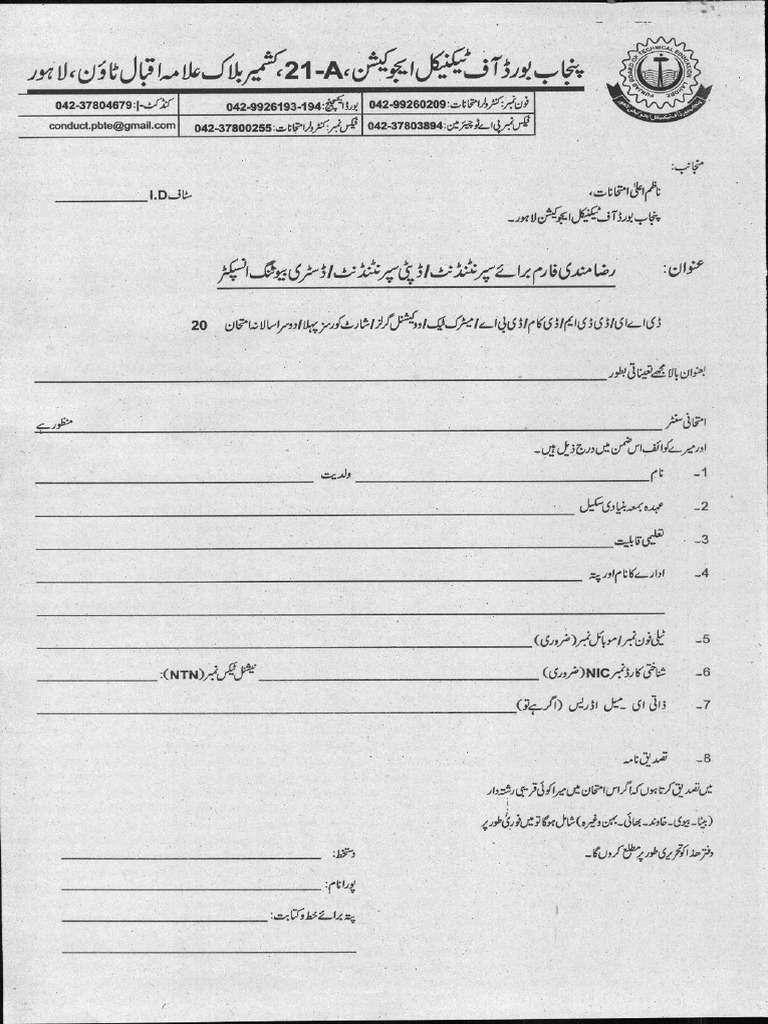 پنجاب بورڈ آف ٹیکنیکل ایجوکیشن، 21-A، کشمیر بلاک علامہ اقبال ٹاؤن، لاہور
PUNJAB BOARD OF TECHNICAL EDUCATION LAHORE
پنجاب بورڈ آف ٹیکنیکل ایجوکیشن لاہور
فون نمبر: کنٹرولر امتحانات: 042-99260209 بورڈ ایکسچینج: 042-9926193-194 کنڈکٹ-I: 042-37804679
فیکس نمبر پی اے ٹو چیئرمین: 042-37803894 فیکس نمبر: کنٹرولر امتحانات: 042-37800255 conduct.pbte@gmail.com
منجانب:
ناظم اعلیٰ امتحانات، سٹاف I.D
پنجاب بورڈ آف ٹیکنیکل ایجوکیشن لاہور۔
عنوان: رضامندی فارم برائے سپرنٹنڈنٹ/ڈپٹی سپرنٹنڈنٹ/ڈسٹری بیوٹنگ انسپکٹر
ڈی اے ای/ڈی ڈی ایم/ڈی کام/ڈی بی اے/میٹرک ٹیک/ووکیشنل گرلز/شارٹ کورسز پہلا/دوسرا سالانہ امتحان 20
بعنوان بالا مجھے تعیناتی بطور
امتحانی سنٹر منظور ہے
اور میرے کوائف اس ضمن میں درج ذیل ہیں۔
1۔ نام ولدیت
2۔ عہدہ بمعہ بنیادی سکیل
3۔ تعلیمی قابلیت
4۔ ادارے کا نام اور پتہ
5۔ ٹیلی فون نمبر/موبائل نمبر (ضروری)
6۔ شناختی کارڈ نمبر NIC (ضروری) نیشنل ٹیکس نمبر (NTN):
7۔ ذاتی ای۔میل اڈریس (اگر ہے تو)
8۔ تصدیق نامہ
میں تصدیق کرتا ہوں کہ اگر اس امتحان میں میرا کوئی قریبی رشتہ دار
(بیٹا۔بیوی۔خاوند۔بھائی۔بہن وغیرہ) شامل ہوگا تو میں فوری طور پر
دفتر ھذا کو تحریری طور پر مطلع کروں گا۔
دستخط:
پورا نام:
پتہ برائے خط و کتابت: